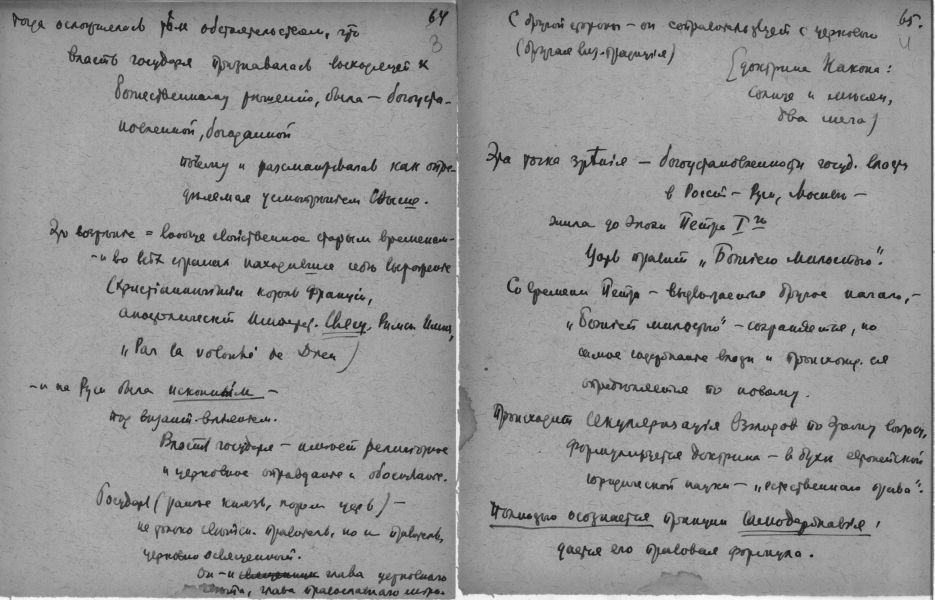 64
3
тогда осложнялось тѣм обстоятельством, что
власть государя признавалась восходящей к
божественному рѣшенію, была — богоуста-
новленной, богоданной
почему и разсматривалась как опре-
дѣляемая усмотрѣнием Свыше.
Это воззрѣніе = вообще свойственное старым временам —
— и во всѣх странах находившее себѣ выраженіе
(Христіаннѣйшій король Франціи,
апостолический Императ. Свящ. Римск. Импер.,
„Par la volonté de Dieu)
— и на Руси была исконным —
под визант. вліянием.
Власть государя — имѣет религіозное
и церковное оправданіе и обоснованіе.
Государь (ранѣе князь, потом царь) —
не только свѣтск. правитель, но и правитель,
церковно освященный.
Он — и священник глава церковного
глава православнаго
65.
4
С другой стороны — он сотрапезничает с церковью
(другая виз. традиція)
[доктрина Никона:
солнце и мѣсяц,
два меча]
Эта точка зрѣнія — богоустановленности госуд. власти
в Россіи — Руси, Москвы —
жила до эпохи Петра Iго
Царь правит „Божіею милостью".
Со времени Петра — выдвигается другое начало, —
„Божіей милостью" — сохраняется, но
самое содержаніе власти и происхожд. ея
опредѣляется по новому.
Происходит секуляризація взглядов по этому вопросу,
формулируется доктрина — в духѣ европейской
юридической науки — „естественнаго права".
Принципы самодержавія,
дается его правовая формула.